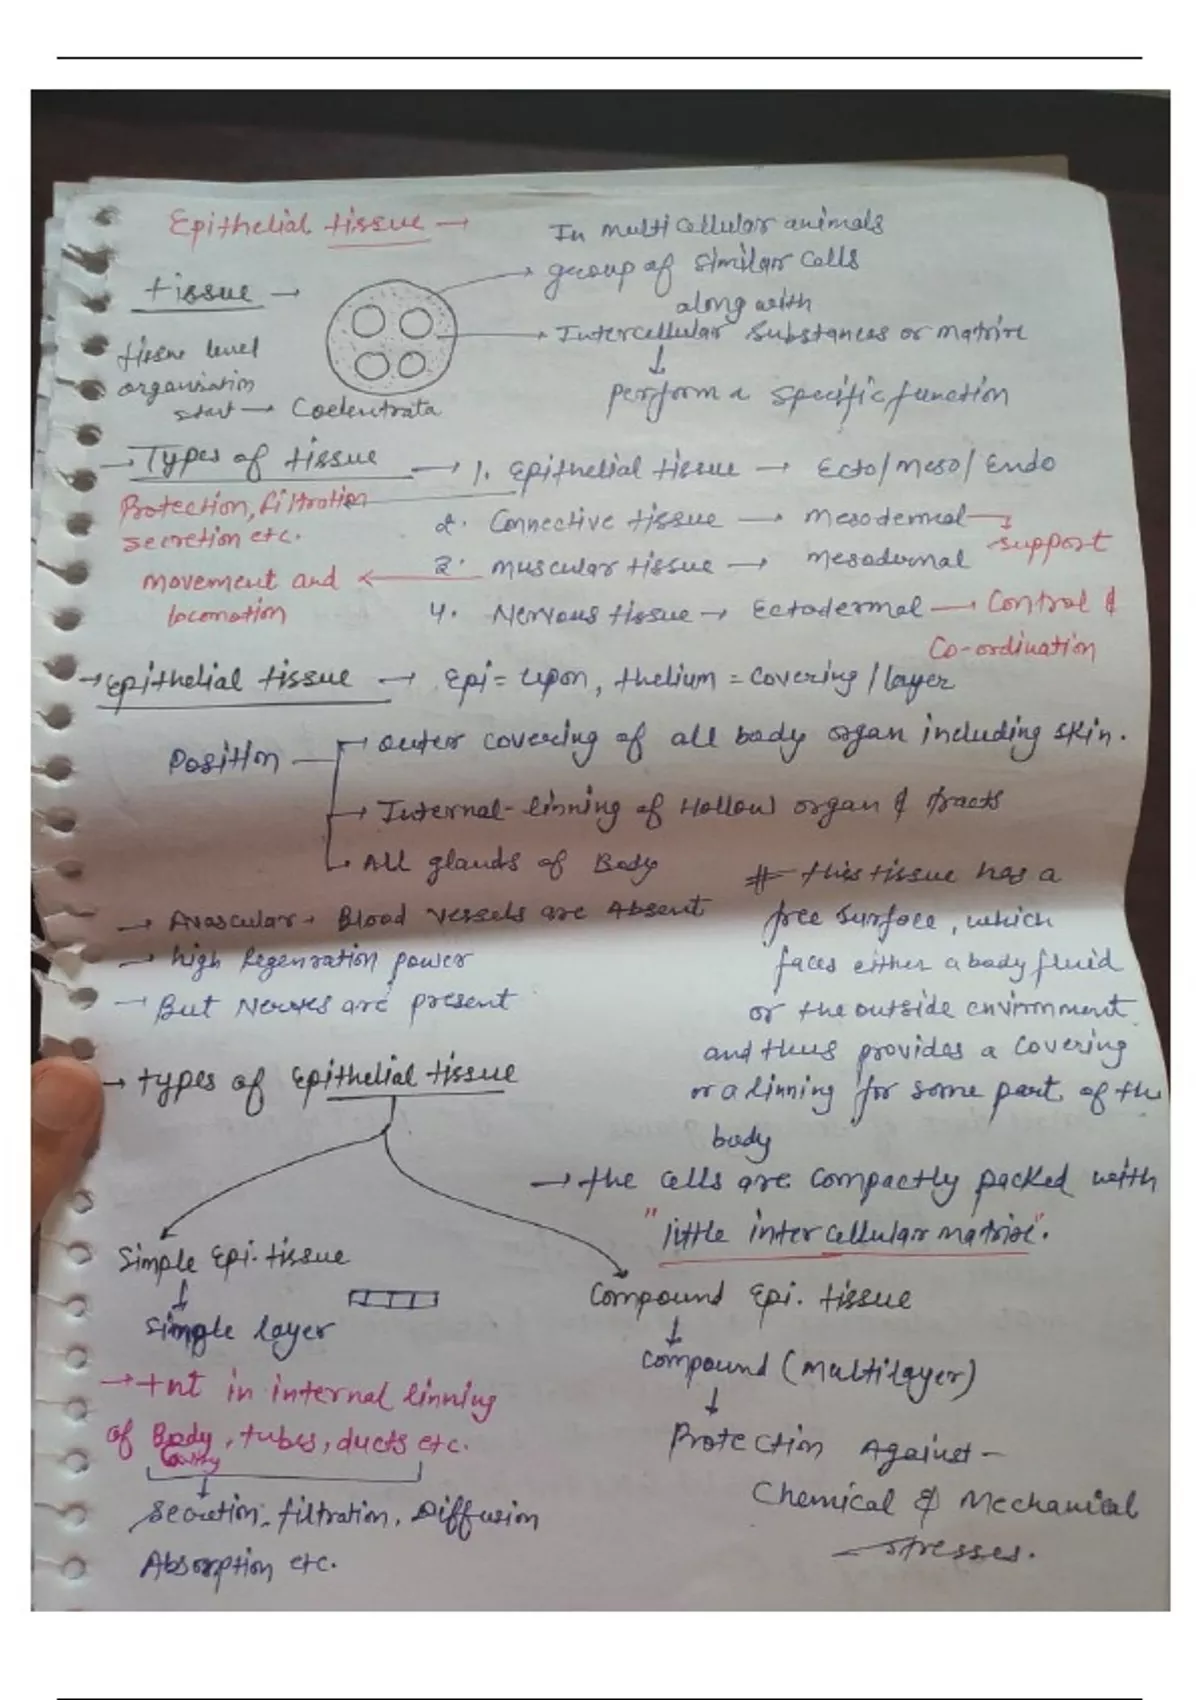 Epithelial tissue →
In multicellular animals
group of similar cells
along with
Intercellular substances or matrix
↓
perform a specific function
tissue →
tissue level
organisation
start → Coelentrata
→ Types of tissue → 1. Epithelial tissue → Ecto/Meso/Endo
Protection, filtration
secretion etc.
2. Connective tissue → Mesodermal → support
3. Muscular tissue → Mesodermal
movement and
locomotion
4. Nervous tissue → Ectodermal → Control &
Co-ordination
→ Epithelial tissue → Epi = upon, thelium = covering / layer
Position → outer covering of all body organ including skin.
→ Internal-linning of Hollow organ & tracts
→ All glands of Body
→ Avascular → Blood vessels are Absent
→ high Regenration power
→ But Nerves are present
# this tissue has a
free surface, which
faces either a body fluid
or the outside environment
and thus provides a covering
or a linning for some part of the
body
→ the cells are compactly packed with
"little intercellular matrix".
→ types of Epithelial tissue
Simple Epi. tissue
↓
Simple layer
→ +nt in internal linning
of Body Cavity, tubes, ducts etc.
↓
Secretion, filtration, Diffusion
Absorption etc.
Compound Epi. tissue
↓
Compound (multilayer)
↓
Protection Against -
Chemical & Mechanical
stresses.